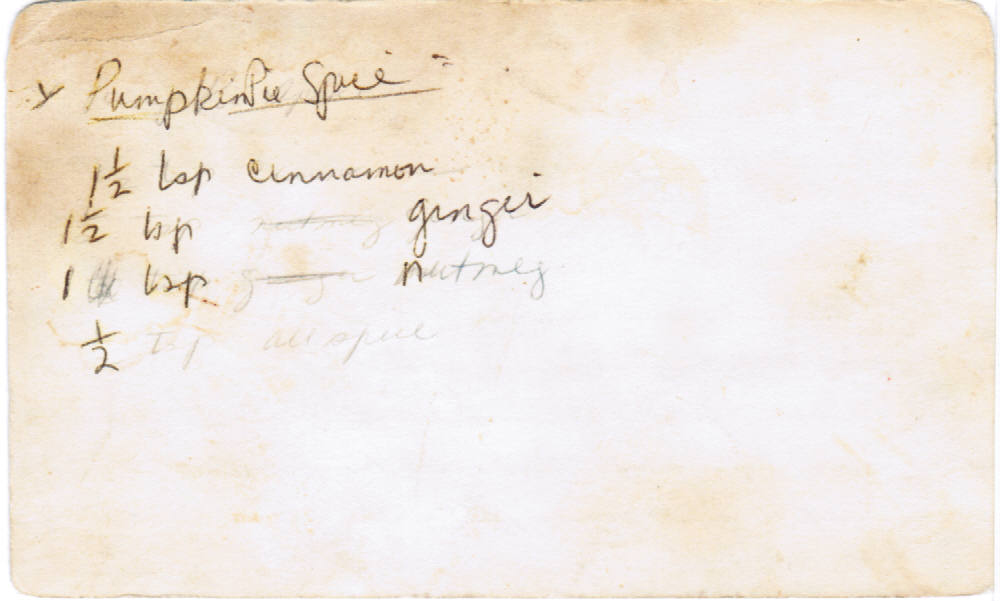 Pumpkin Pie Spice
1 1/2 tsp cinnamon
1 1/2 tsp nutmeg ginger
1 tsp ginger nutmeg
1/2 tsp allspice